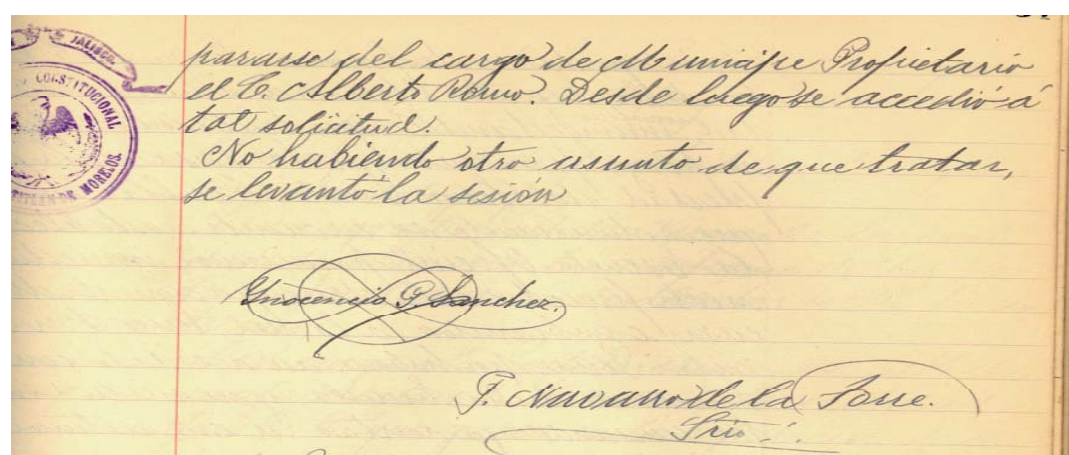 JALISCO.
CONSTITUCIONAL
DE MORELOS.
pararse del cargo de Munícipe Propietario
el C. Alberto Romo. Desde luego se accedió á
tal solicitud.
No habiendo otro asunto de que tratar,
se levantó la sesión
Inocencio P. Sanchez.
F. Navarro de la Torre.
Srio.